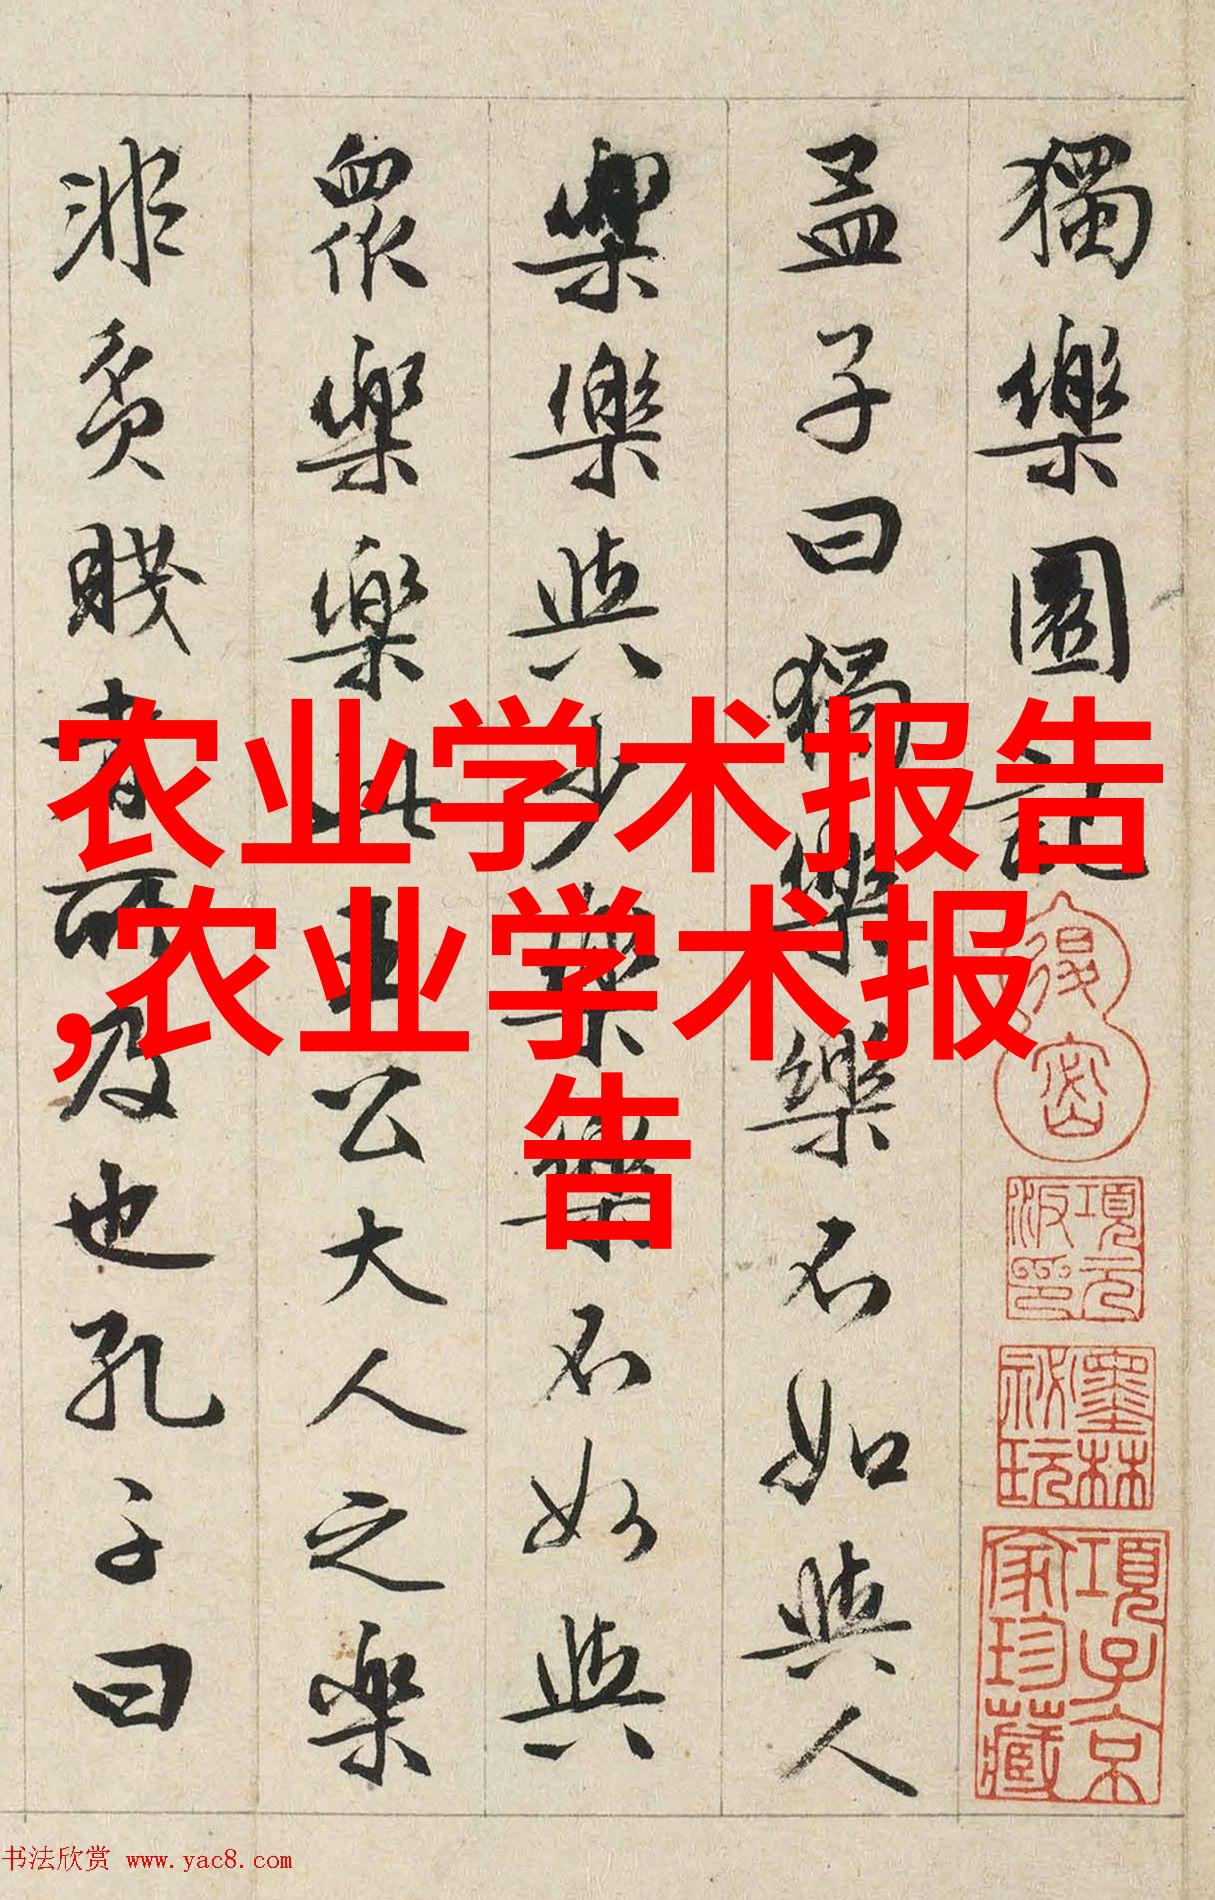 獨樂園記
孟子曰獨樂樂不如與人
樂樂與少樂樂不如與
眾樂樂此王公大人之樂
非貧賤者所及也孔子曰
农业学术报告
,农业学术报
告
項元汴印
墨林祕玩
項子京家珍藏
书法欣赏 www.yac8.com